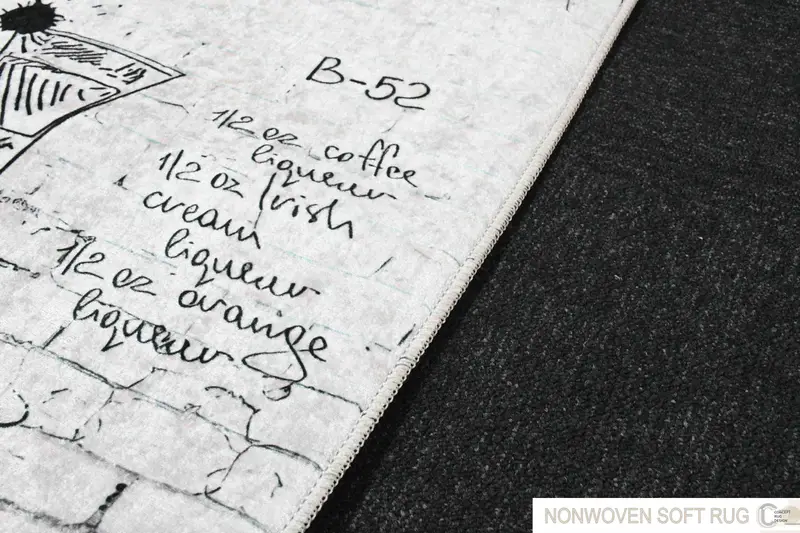 B-52
1/2 oz coffee
liqueur
1/2 oz Irish
cream
liqueur
1/2 oz orange
liqueur
NONWOVEN SOFT RUG
CONCEPT
RUG
DESIGN